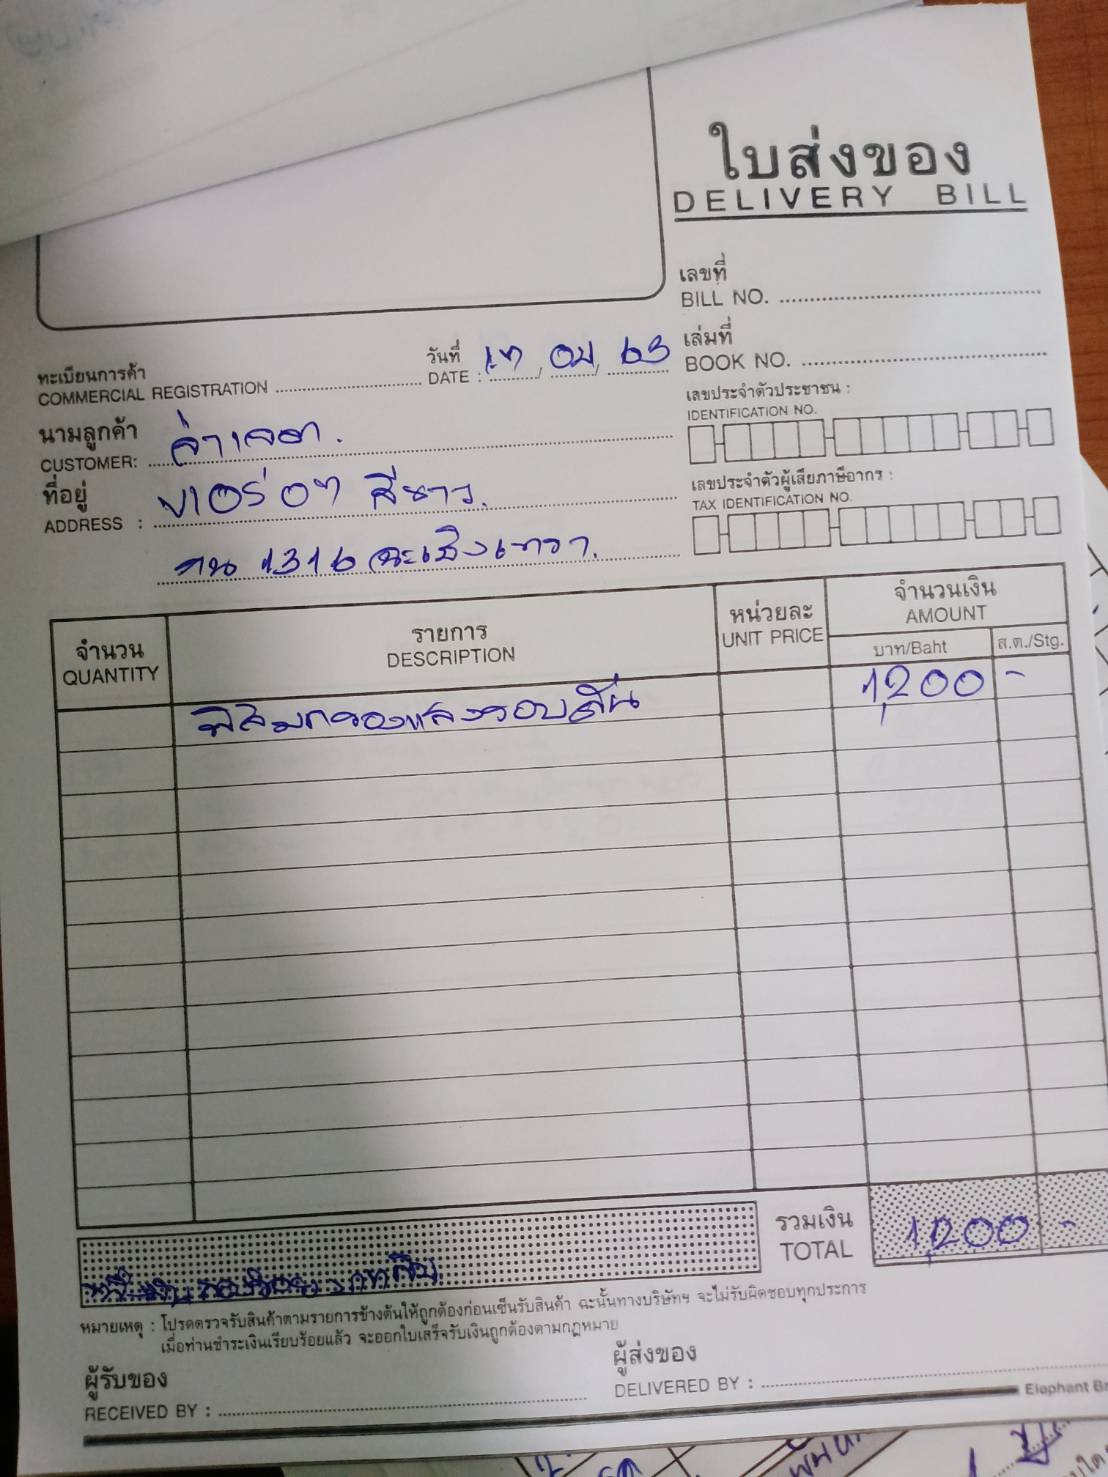 ใบส่งของ
DELIVERY BILL
เลขที่
BILL NO.
เล่มที่
BOOK NO.
ทะเบียนการค้า
COMMERCIAL REGISTRATION
วันที่
DATE : 17 / 04 / 63
เลขประจำตัวประชาชน :
IDENTIFICATION NO.
นามลูกค้า
CUSTOMER: จ่าเจตา.
ที่อยู่
ADDRESS : สีขาว.
เลขประจำตัวผู้เสียภาษีอากร :
TAX IDENTIFICATION NO.
1316 ฉะเชิงเทรา.
จำนวน
QUANTITY
รายการ
DESCRIPTION
หน่วยละ
UNIT PRICE
จำนวนเงิน
AMOUNT
บาท/Baht
ส.ต./Stg.
ฟิล์มกรองแสงรอบคัน 1,200 -
รวมเงิน
TOTAL
1,200 -
หมายเหตุ : โปรดตรวจรับสินค้าตามรายการข้างต้นให้ถูกต้องก่อนเซ็นรับสินค้า ฉะนั้นทางบริษัทฯ จะไม่รับผิดชอบทุกประการ
เมื่อท่านชำระเงินเรียบร้อยแล้ว จะออกใบเสร็จรับเงินถูกต้องตามกฎหมาย
ผู้รับของ
RECEIVED BY :
ผู้ส่งของ
DELIVERED BY :
Elephant